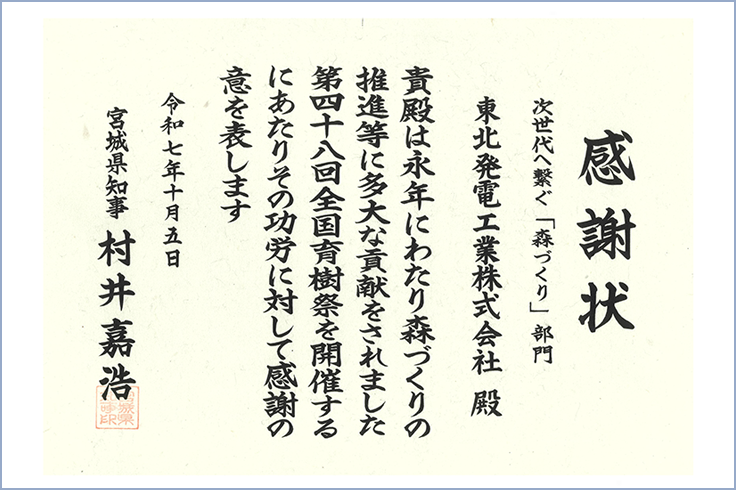 感謝状
次世代へ繋ぐ「森づくり」部門
東北発電工業株式会社 殿
貴殿は永年にわたり森づくりの
推進等に多大な貢献をされました
第四十八回全国育樹祭を開催する
にあたりその功労に対して感謝の
意を表します
令和七年十月五日
宮城県知事 村井嘉浩